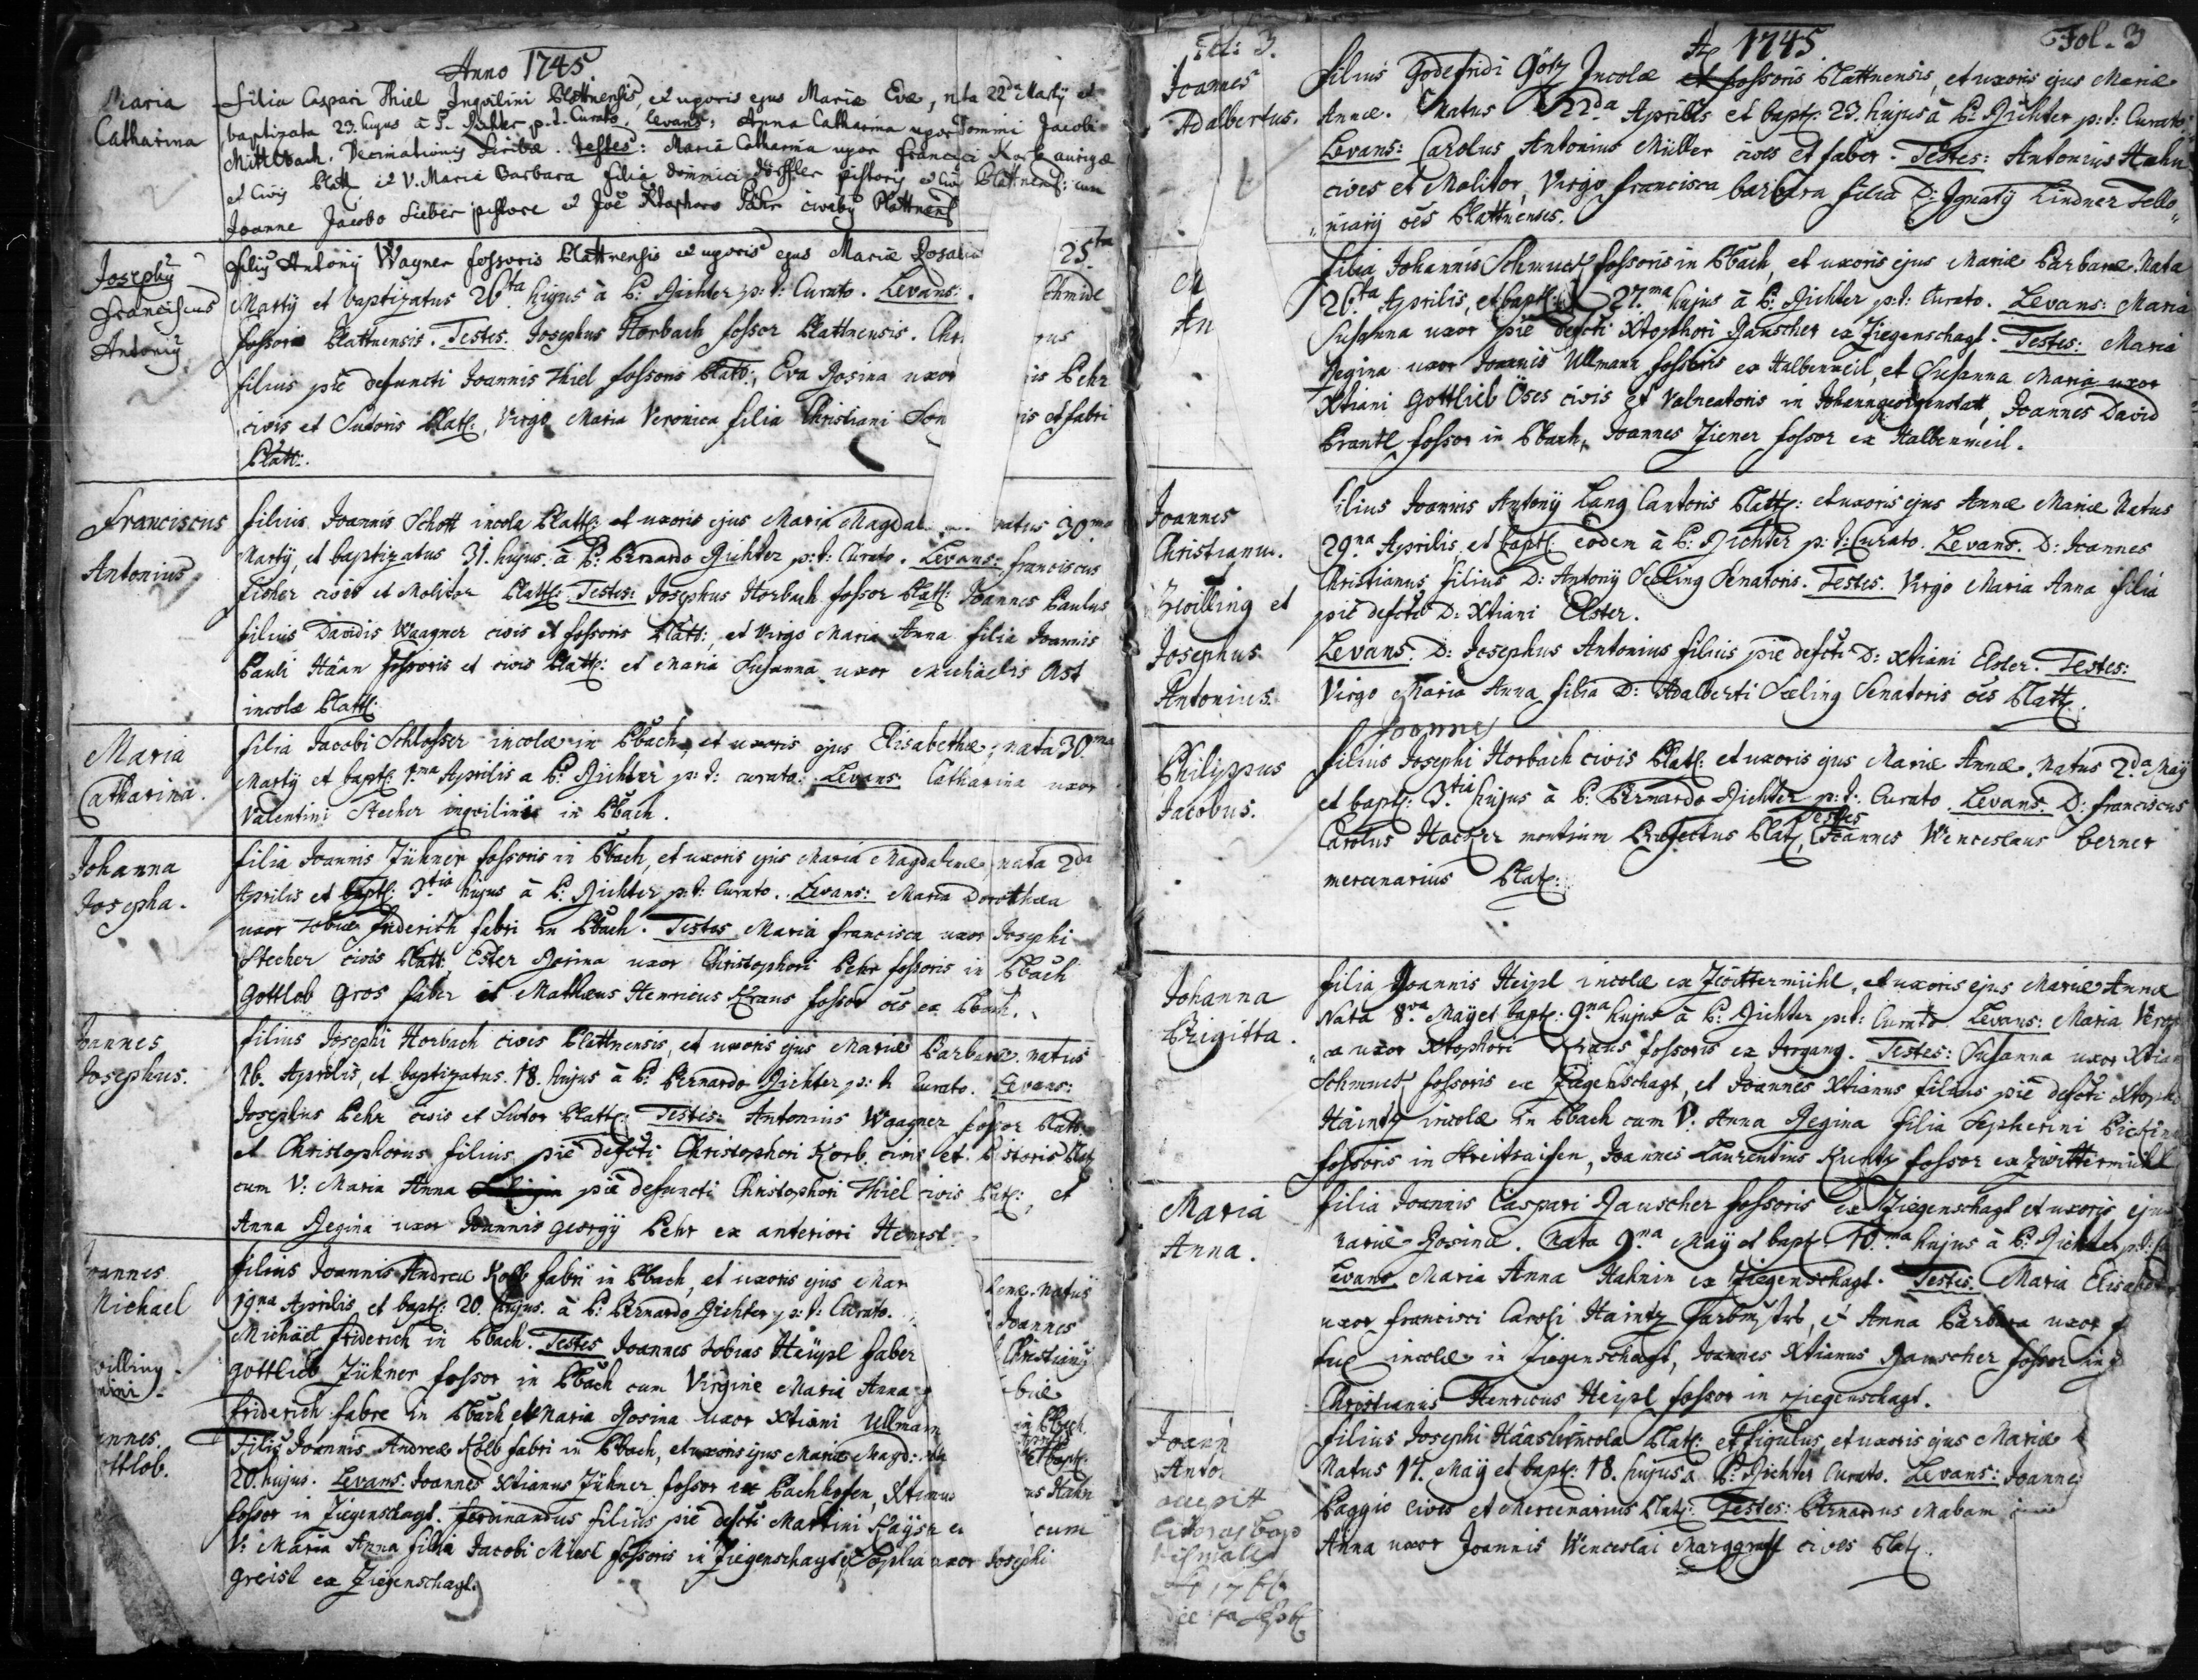 Anno 1745
Maria
Catharina
filia Caspari Thiel Inqvilini Plattnensis, et uxoris ejus Mariæ Evæ, nata 22da Martÿ et
baptizata 23. hujus à P. Richter p. t. Curato. Levans: Anna Catharina uxor Domini Jacobi
Mittlbach. Decimationis Scribæ. Testes: Maria Catharina uxor Francisci Korb aurigæ
et Civis Platt. et V. Maria Barbara filia Dominici Dörffler pistoris et civis Plattnens: cum
Joanne Jacobo Lieber pistore et Joē Xtophoro Pähr civibus Plattnens
Josephus
Franciscus
Antonius
filius Antonÿ Wagner fossoris Plattnensis et uxoris ejus Mariæ Rosa 25ta
Martÿ et baptizatus 26ta hujus à P: Richter p: t: Curato. Levans: chmidl
fossoris Plattnensis. Testes. Josephus Horbach fossor Plattnensis. Chr
filius piè defuncti Joannis Thiel fossoris Platt:, Eva Rosina uxor is Pehr
civis et Sutoris Platt:, Virgo Maria Veronica filia Christiani is et fabri
Platt:.
Franciscus
Antonius
filius Joannis Schott incolæ Platt: et uxoris ejus Maria Magdal natus 30ma
Martÿ, et baptizatus 31. hujus à P: Bernardo Richter p: t: Curato. Levans: Franciscus
Ficher civis et Molitor Platt: Testes: Josephus Horbach fossor Platt: Joannes Paulus
filius Davidis Waagner civis et fossoris Platt:, et Virgo Maria Anna filia Joannis
Pauli Häan fossoris et civis Platt: et Maria Susanna uxor Michäelis Ast
incolæ Platt:
Maria
Catharina.
filia Jacobi Schlosser incolæ in Pbach, et uxoris ejus Elisabethæ, nata 30ma
Martÿ et bapt: 1.ma Aprilis a P: Richter p: t: curato: Levans: Catharina uxor
Valentini Stecher inqvilinis in Pbach.
Johanna
Josepha.
filia Joannis Zühner fossoris in Pbach, et uxoris ejus Maria Magdalenæ, nata 2da
Aprilis et bapt: 3tia hujus à P: Richter p: t: Curato. Levans: Maria Dorothæa
uxor Tobiæ Friderich fabri in Pbach. Testes Maria Francisca uxor Josephi
Stecher civis Platt: Ester Rosina uxor Christophori Pehr fossoris in Pbach
Gottlob Gros faber et Mathæus Henricus Kraus fossor oēs ex Pbach.
Joannes
Josephus.
filius Josephi Horbach civis Plattnensis, et uxoris ejus Mariæ Barbaræ. natus
16. Aprilis, et baptizatus. 18. hujus à P: Bernardo Richter p: t: Curato. Levans:
Josephus Pehr civis et Sutor Platt: Testes: Antonius Waagner fossor Platt:
et Christophorus filius piè defcti Christophori Korb civis et Pistoris Platt
cum V: Maria Anna piè defuncti Christophori Thiel civis Platt:, et
Anna Regina uxor Joannis Georgÿ Pehr ex anteriori
oannes
Michael
willing
filius Joannis Andreæ Kolb fabri in Pbach, et uxoris ejus Mar lenæ natus
19na Aprilis, et bapt: 20. hujus. à P: Bernardo Richter p: t: Curato. Joannes
Michäel Friderich in Pbach. Testes Joannes Tobias Heüpl faber Christianus
Gottlieb Zühner fossor in Pbach cum Virgine Maria Anna
Friderich fabre in Pbach, et Maria Rosina uxor Xtiani Ullmann in Pbach.
nnes
ottlob.
Filius Joannis Andreæ Kolb fabri in Pbach, et uxoris ejus Mariæ Magd: et bapt:
20. hujus. Levans: Joannes Xtianus Zühner fossor ex Pachhofen, us Hahn
fossor in Ziegenschagt. Ferdinandus filius piè defcti Martini Kaÿser cum
V: Maria Anna filia Jacobi Miesl fossoris in Ziegenschagt, Sophia uxor Josephi
Greisl ex Ziegenschagt.
Fol: 3.
Ao 1745.
Fol. 3
Joannes
Adalbertus.
filius Godefridi Götz Incolæ et fossoris Plattnensis, et uxoris ejus Mariæ
Annæ. Natus 22da Aprilis et bapt: 23. hujus à P: Richter p: t: Curato
Levans: Carolus Antonius Müller civis et faber. Testes: Antonius Hahn
civis et Molitor, Virgo Francisca Barbara filia D: Ignatÿ Lindner Tello
niarÿ oēs Plattnenses.
M
An
filia Johannis Schmuck fossoris in Pbach, et uxoris ejus Mariæ Barbaræ. Nata
26ta Aprilis, et bapt: 27.ma hujus à P: Richter p: t: Curato. Levans: Maria
Susanna uxor piè defcti Xtophori Rauscher ex Ziegenschagt. Testes: Maria
Regina uxor Joannis Ullmann fossoris ex Halbenmeil, et Susanna Maria uxor
Xtiani Gottlieb Öses civis et Valneatoris in Johanngeorgenstatt, Joannes David
Prantl fossor in Pbach, Joannes Ziener fossor ex Halbenmeil.
Joannes
Christianus.
Zwilling et
Josephus
Antonius.
filius Joannis Antonÿ Lang Cantoris Platt: et uxoris ejus Annæ Mariæ Natus
29.na Aprilis, et bapt: eodem à P: Richter p: t: Curato. Levans. D: Joannes
Christianus filius D: Antonÿ Seeling Senatoris. Testes. Virgo Maria Anna filia
piè defcti D: Xtiani Elster.
Levans: D: Josephus Antonius filius piè defcti D: Xtiani Elster. Testes:
Virgo Maria Anna filia D: Adalberti Seeling Senatoris oēs Platt.
Philippus
Jacobus.
Joannes
filius Josephi Horbach civis Platt: et uxoris ejus Mariæ Annæ. Natus 2.da Maÿ
et bapt: 3.tia hujus à P: Bernardo Richter p: t: Curato. Levans. D: Franciscus
Testes
Carolus Hacker montium Præfectus Platt: Joannes Wenceslaus Berner
mercenarius Platt:
Johanna
Brigitta.
filia Joannis Heipl incolæ ex Zwittermühl, et uxoris ejus Mariæ Annæ
Nata 8va Maÿ et bapt: 9na hujus à P: Richter p: t: Curato Levans: Maria Veron
ca uxor Xtophori Kraus fossoris ex Irrgang. Testes: Susanna uxor Xtian
Schmuck fossoris ex Ziegenschagt, et Joannes Xtianus filius piè defcti Xtoph
Haintz incolæ in Pbach cum V: Anna Regina filia Sepherini
fossoris in Streitsaifen, Joannes Laurentius Kuntz fossor ex Zwittermühl
Maria
Anna.
filia Joannis Caspari Rauscher fossoris ex Ziegenschagt et uxoris ejus
Mariæ Rosinæ. Nata 9.na Maÿ et bapt. 10.ma hujus à P: Richter p: t:
Levans Maria Anna Hahnin ex Ziegenschagt. Testes. Maria Elisabet
uxor Francisci Caroli Haintz, et Anna Barbara uxor
incolæ in Ziegenschagt, Joannes Xtianus Rauscher fossor in
Christianus Henricus Heipl fossor in Ziegenschagt.
Joann
Anto
accepit
Literas bap
tismales
filius Josephi Häasl incola Platt: et figulus, et uxoris ejus Mariæ
Natus 17. Maÿ et bapt: 18. hujus à P: Richter Curato. Levans: Joannes
Paggio civis et Mercenarius Platt: Testes: Bernardus Mabam
Anna uxor Joannis Wenceslai Marggraff civis Platt.